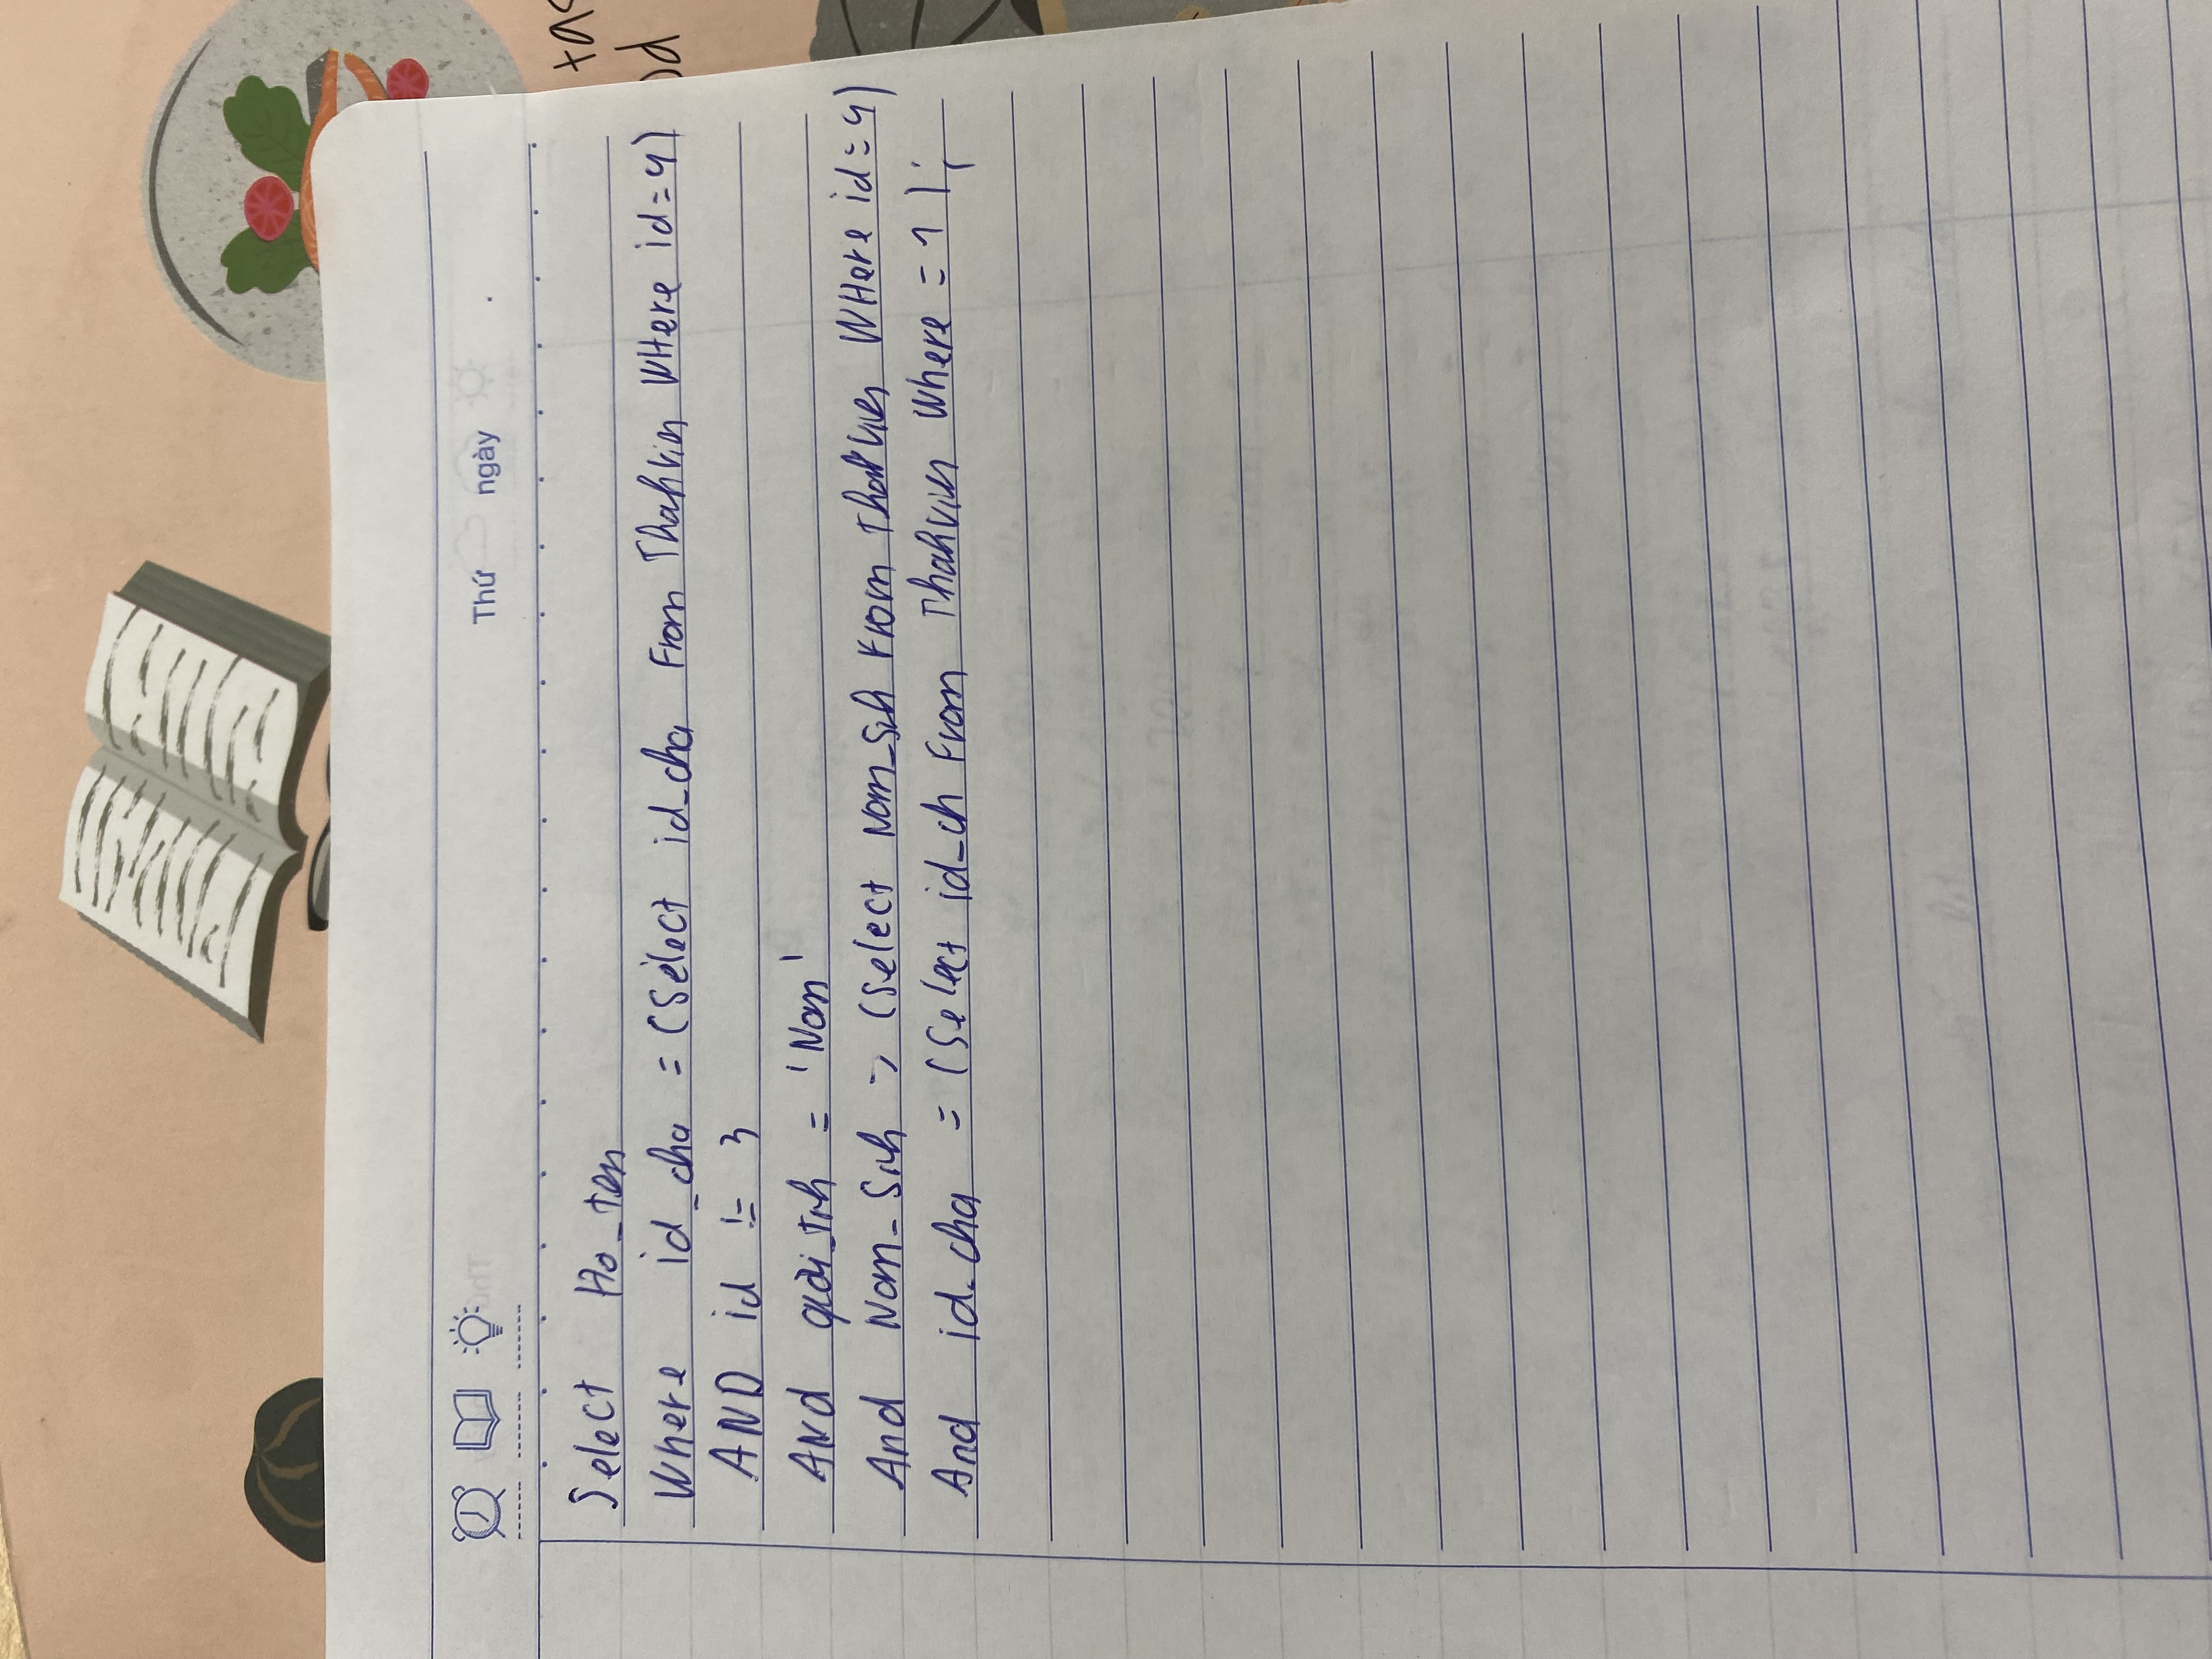 Thứ ngày
Select Ho_ten
Where id_cha = (Select id_cha From Thahvien WHere id=4)
AND id != 3
ANd gioi_tnh = 'Nam'
And Nam_Sinh > (select Nam_Sih From Thahvien WHere id=4)
And id_cha = (Select id_ch From Thahvien where = 1);